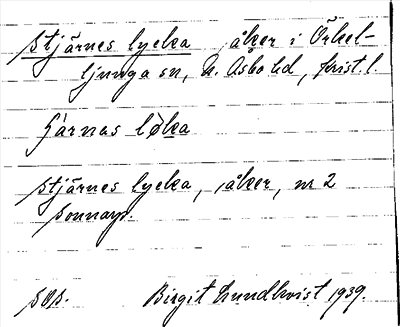 Stjärnes lycka, åker i Örkel-
ljunga sn, N. Åsbo hd, Krist. l.
ʃärnas løka
Stjärnes lycka, åker, nr 2
Sonnarp.
Birgit Lundkvist 1939.